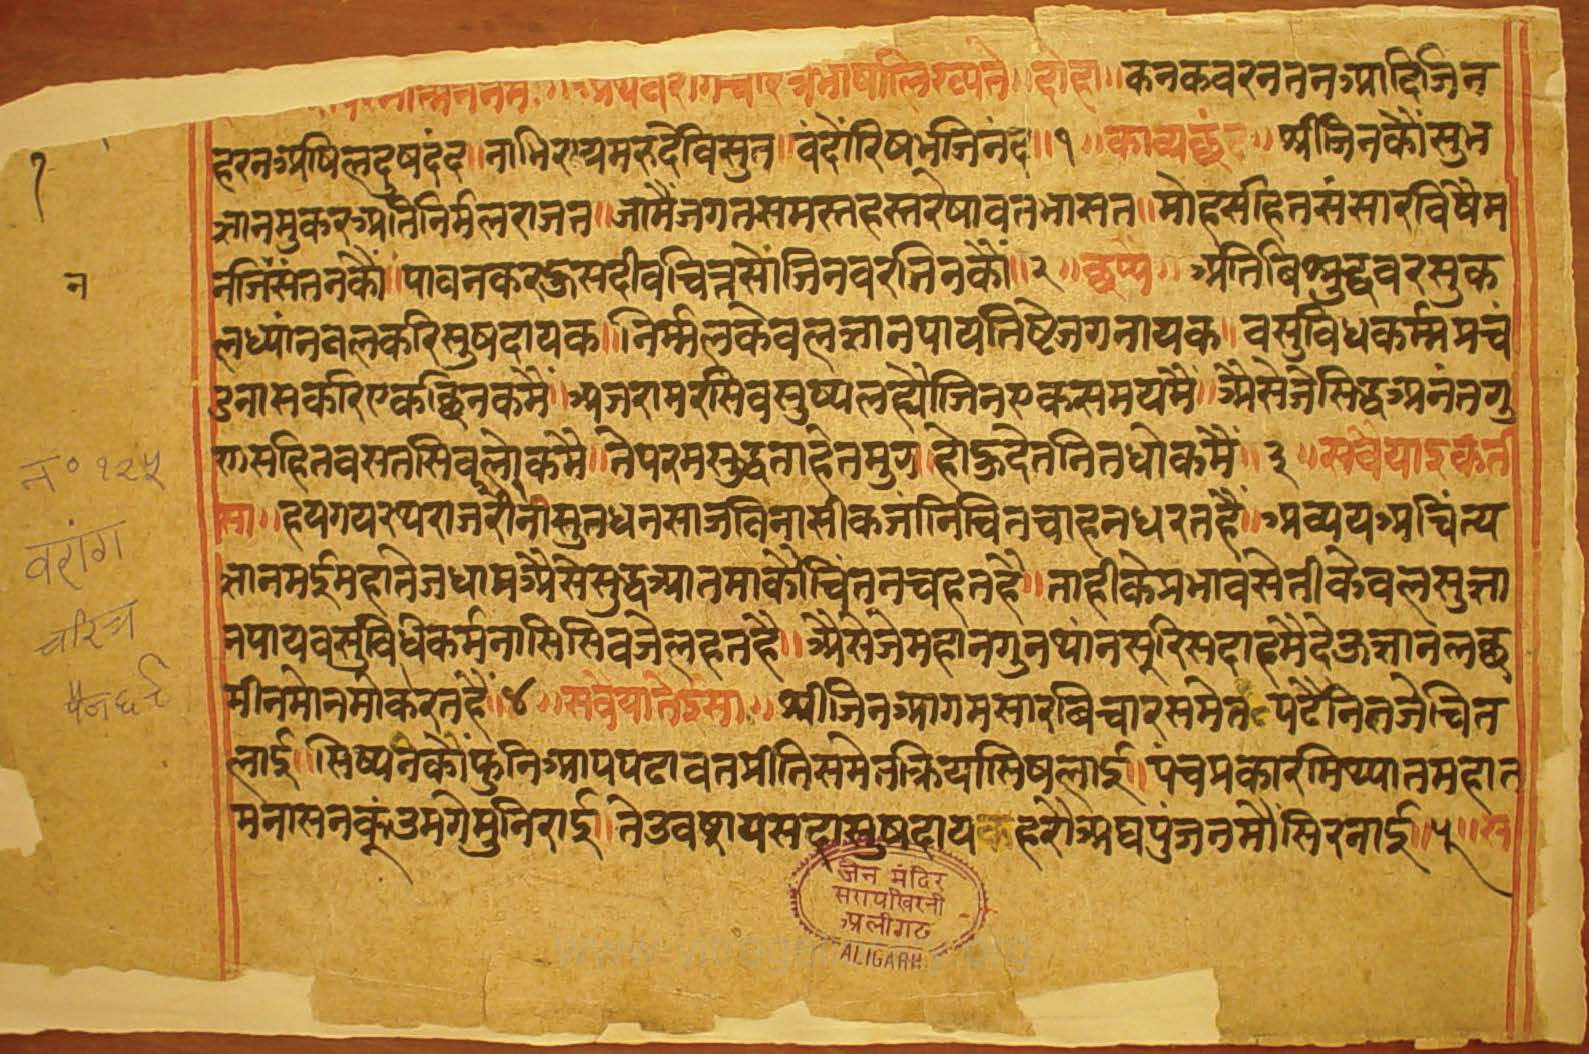 अथवरांगचारित्रभाषालिख्यते ॥ दोहा ॥ कनकवरनतनआदिजिन
हरनअषिलदुषदंद ॥ नाभिरायमरुदेविसुत ॥ वंदौंरिषभजिनंद ॥ १ ॥ काव्यछंद ॥ श्रीजिनकौंसुभ
ज्ञानमुकरअतिनिर्मलराजत ॥ जामैंजगतसमस्तहस्तरेषावतभासत ॥ मोहसहितसंसारविषैम
नजिंसंतनकौं ॥ पावनकरहुसदीवचित्तसौंजिनवरतिनकौं ॥ २ ॥ छप्पै ॥ अतिविशुद्धवरसुक
लध्यांनबलकरिसुषदायक ॥ निर्म्मलकेवलज्ञानपायतिष्टेजगनायक ॥ वसुविधकर्म्मप्रचं
डनासकरिएकछिनकमैं ॥ अजरामरसिवसुष्यलह्यौजिनएकसमयमैं ॥ अैसेजेसिद्धअनंतगु
णसहितवसतसिवलोकमै ॥ तेपरमसुद्धताहेतमुग होहुदेतनितधोकमैं ॥ ३ ॥ सवैयाइकती
सा ॥ हयगयरथराजरौनीसुतधनसाजतिनासीकजांनिचितचाहनधरतहैं ॥ अव्ययअचिंत्य
ज्ञानमईमहातेजधामअैसेसुद्धआतमाकौचिंतनचहतहै ॥ ताहीकेप्रभावसेतीकेवलसुज्ञा
नपायवसुविधिकर्मनासिसिवजेलहतहै ॥ अैसेजेमहानगुनथांनसूरिसदाहमैदेऊज्ञानलछ
मीनमोनमोकरतहैं ॥ ४ ॥ सवैयातेइसा ॥ श्रीजिनआगमसारबिचारसमेत पढैनितजेचित
लाई ॥ सिष्यनिकौंफुनिआपपढावतप्रीतिसमेतक्रियासिषलाई ॥ पंचप्रकारमिथ्यातमहात
मनासनकूंउमगेमुनिराई ॥ तेउवझायसदासुषदायकहरौअघपुंजनमौंसिरनाई ॥ ५ ॥ स
१
न
न॰ १२५
वरांग
चरित्र
जैन मंदिर
सरायखिरनी
अलीगढ
ALIGARH